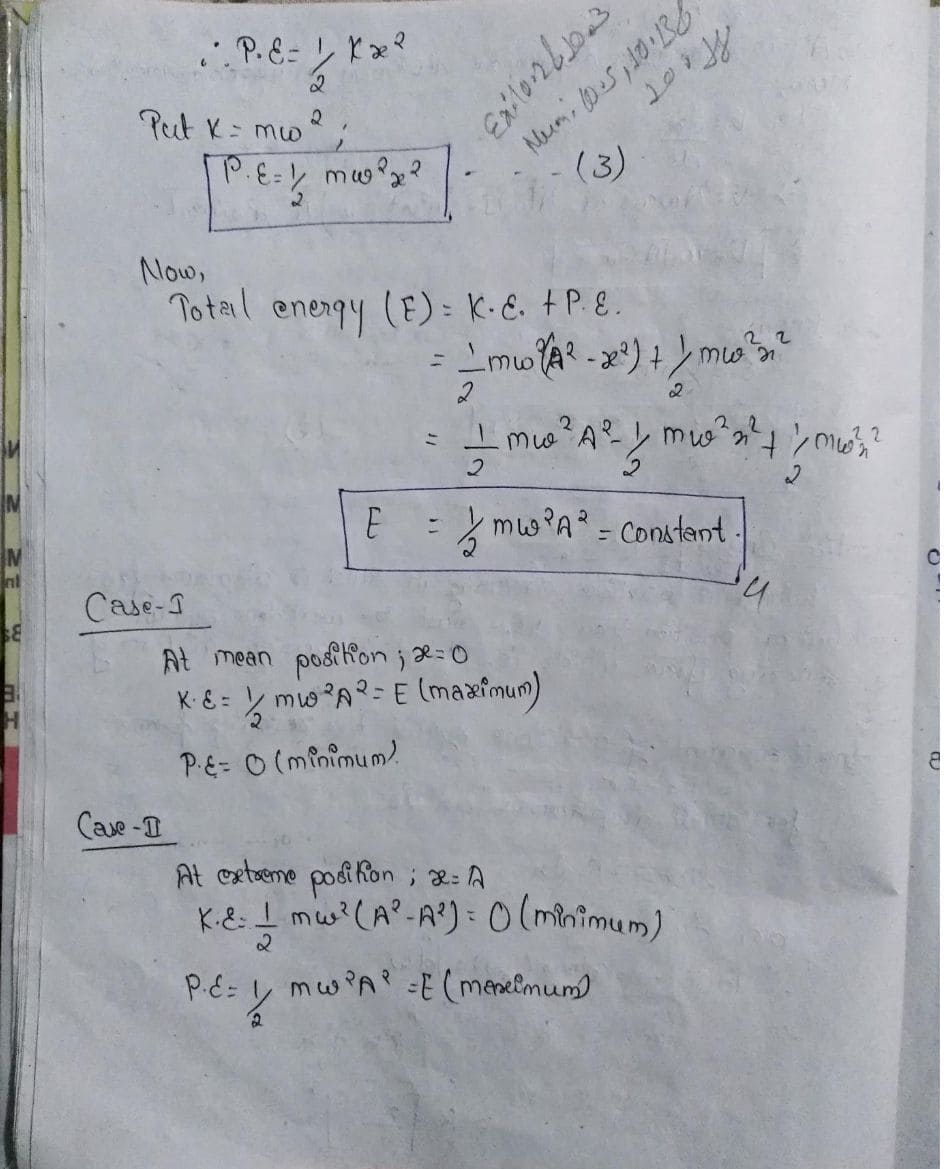 ∴ P.E = 1/2 Kx²
Put K = mω² ;
P.E = 1/2 mω²x² - - - (3)
Now,
Total energy (E) = K.E. + P.E.
= 1/2 mω²(A² - x²) + 1/2 mω²x²
= 1/2 mω²A² - 1/2 mω²x² + 1/2 mω²x²
E = 1/2 mω²A² = Constant.
4
Case-I
At mean position ; x=0
K.E = 1/2 mω²A² = E (maximum)
P.E = 0 (minimum).
Case-II
At extreme position ; x=A
K.E = 1/2 mω² (A² - A²) = 0 (minimum)
P.E = 1/2 mω²A² = E (maximum)